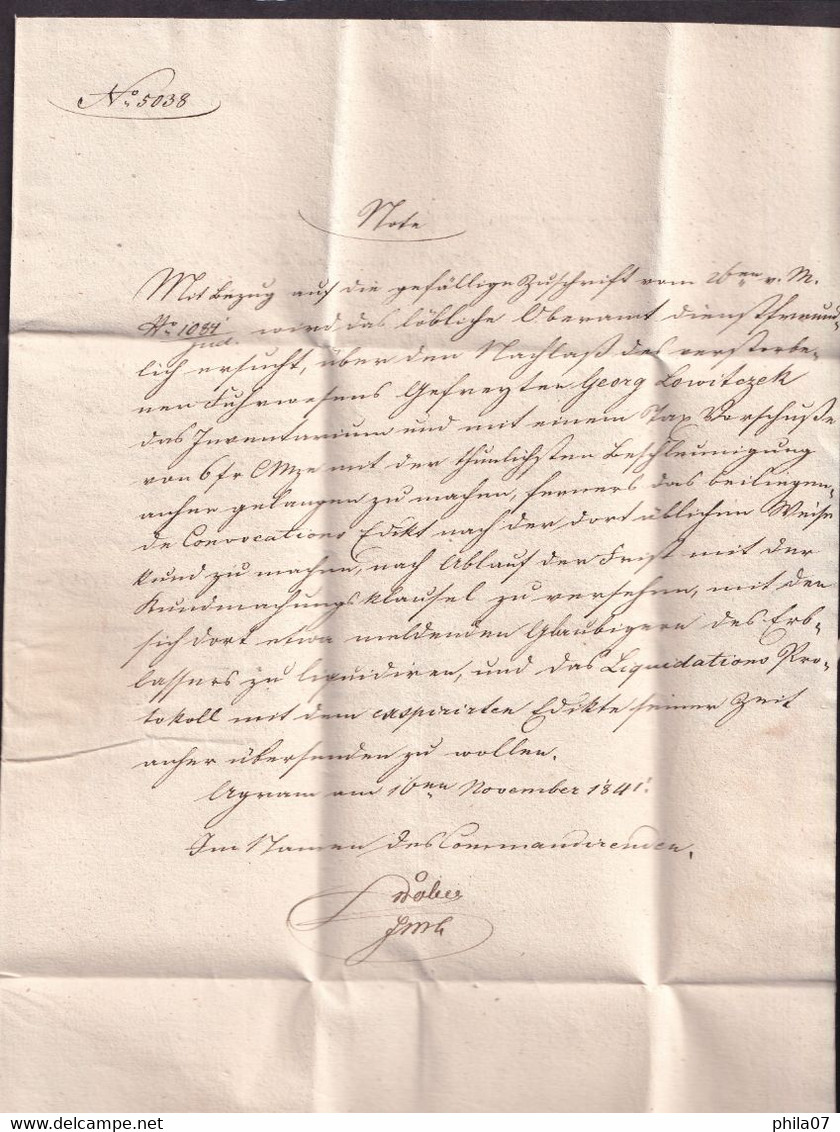 No 5038
Note
Mit Bezug auf die gefällige Zuschrift vom 26ten v. M.
No 1084 jud. wird das löbliche Oberamt dienstfreund-
lich ersucht, über den Nachlaß des verstorbe-
nen Fuhrwesens Gefreyten Georg Lowitczek
das Inventarium und mit einem Tax Vorschuße
von 6 fr CMze mit der thunlichsten Beschleunigung
anher gelangen zu machen, ferners das beiliegen-
de Convocations Edikt nach der dort üblichen Weise
kund zu machen, nach Ablauf der Frist mit der
Kundmachungsklausel zu versehen, mit den
sich dort etwa meldenden Gläubigern des Erb-
lassers zu liquidiren, und das Liquidations Pro-
tokoll mit dem exspirirten Edikte seiner Zeit
anher übersenden zu wollen.
Agram am 16ten November 1841.
Im Namen des Commandirenden.
phila07